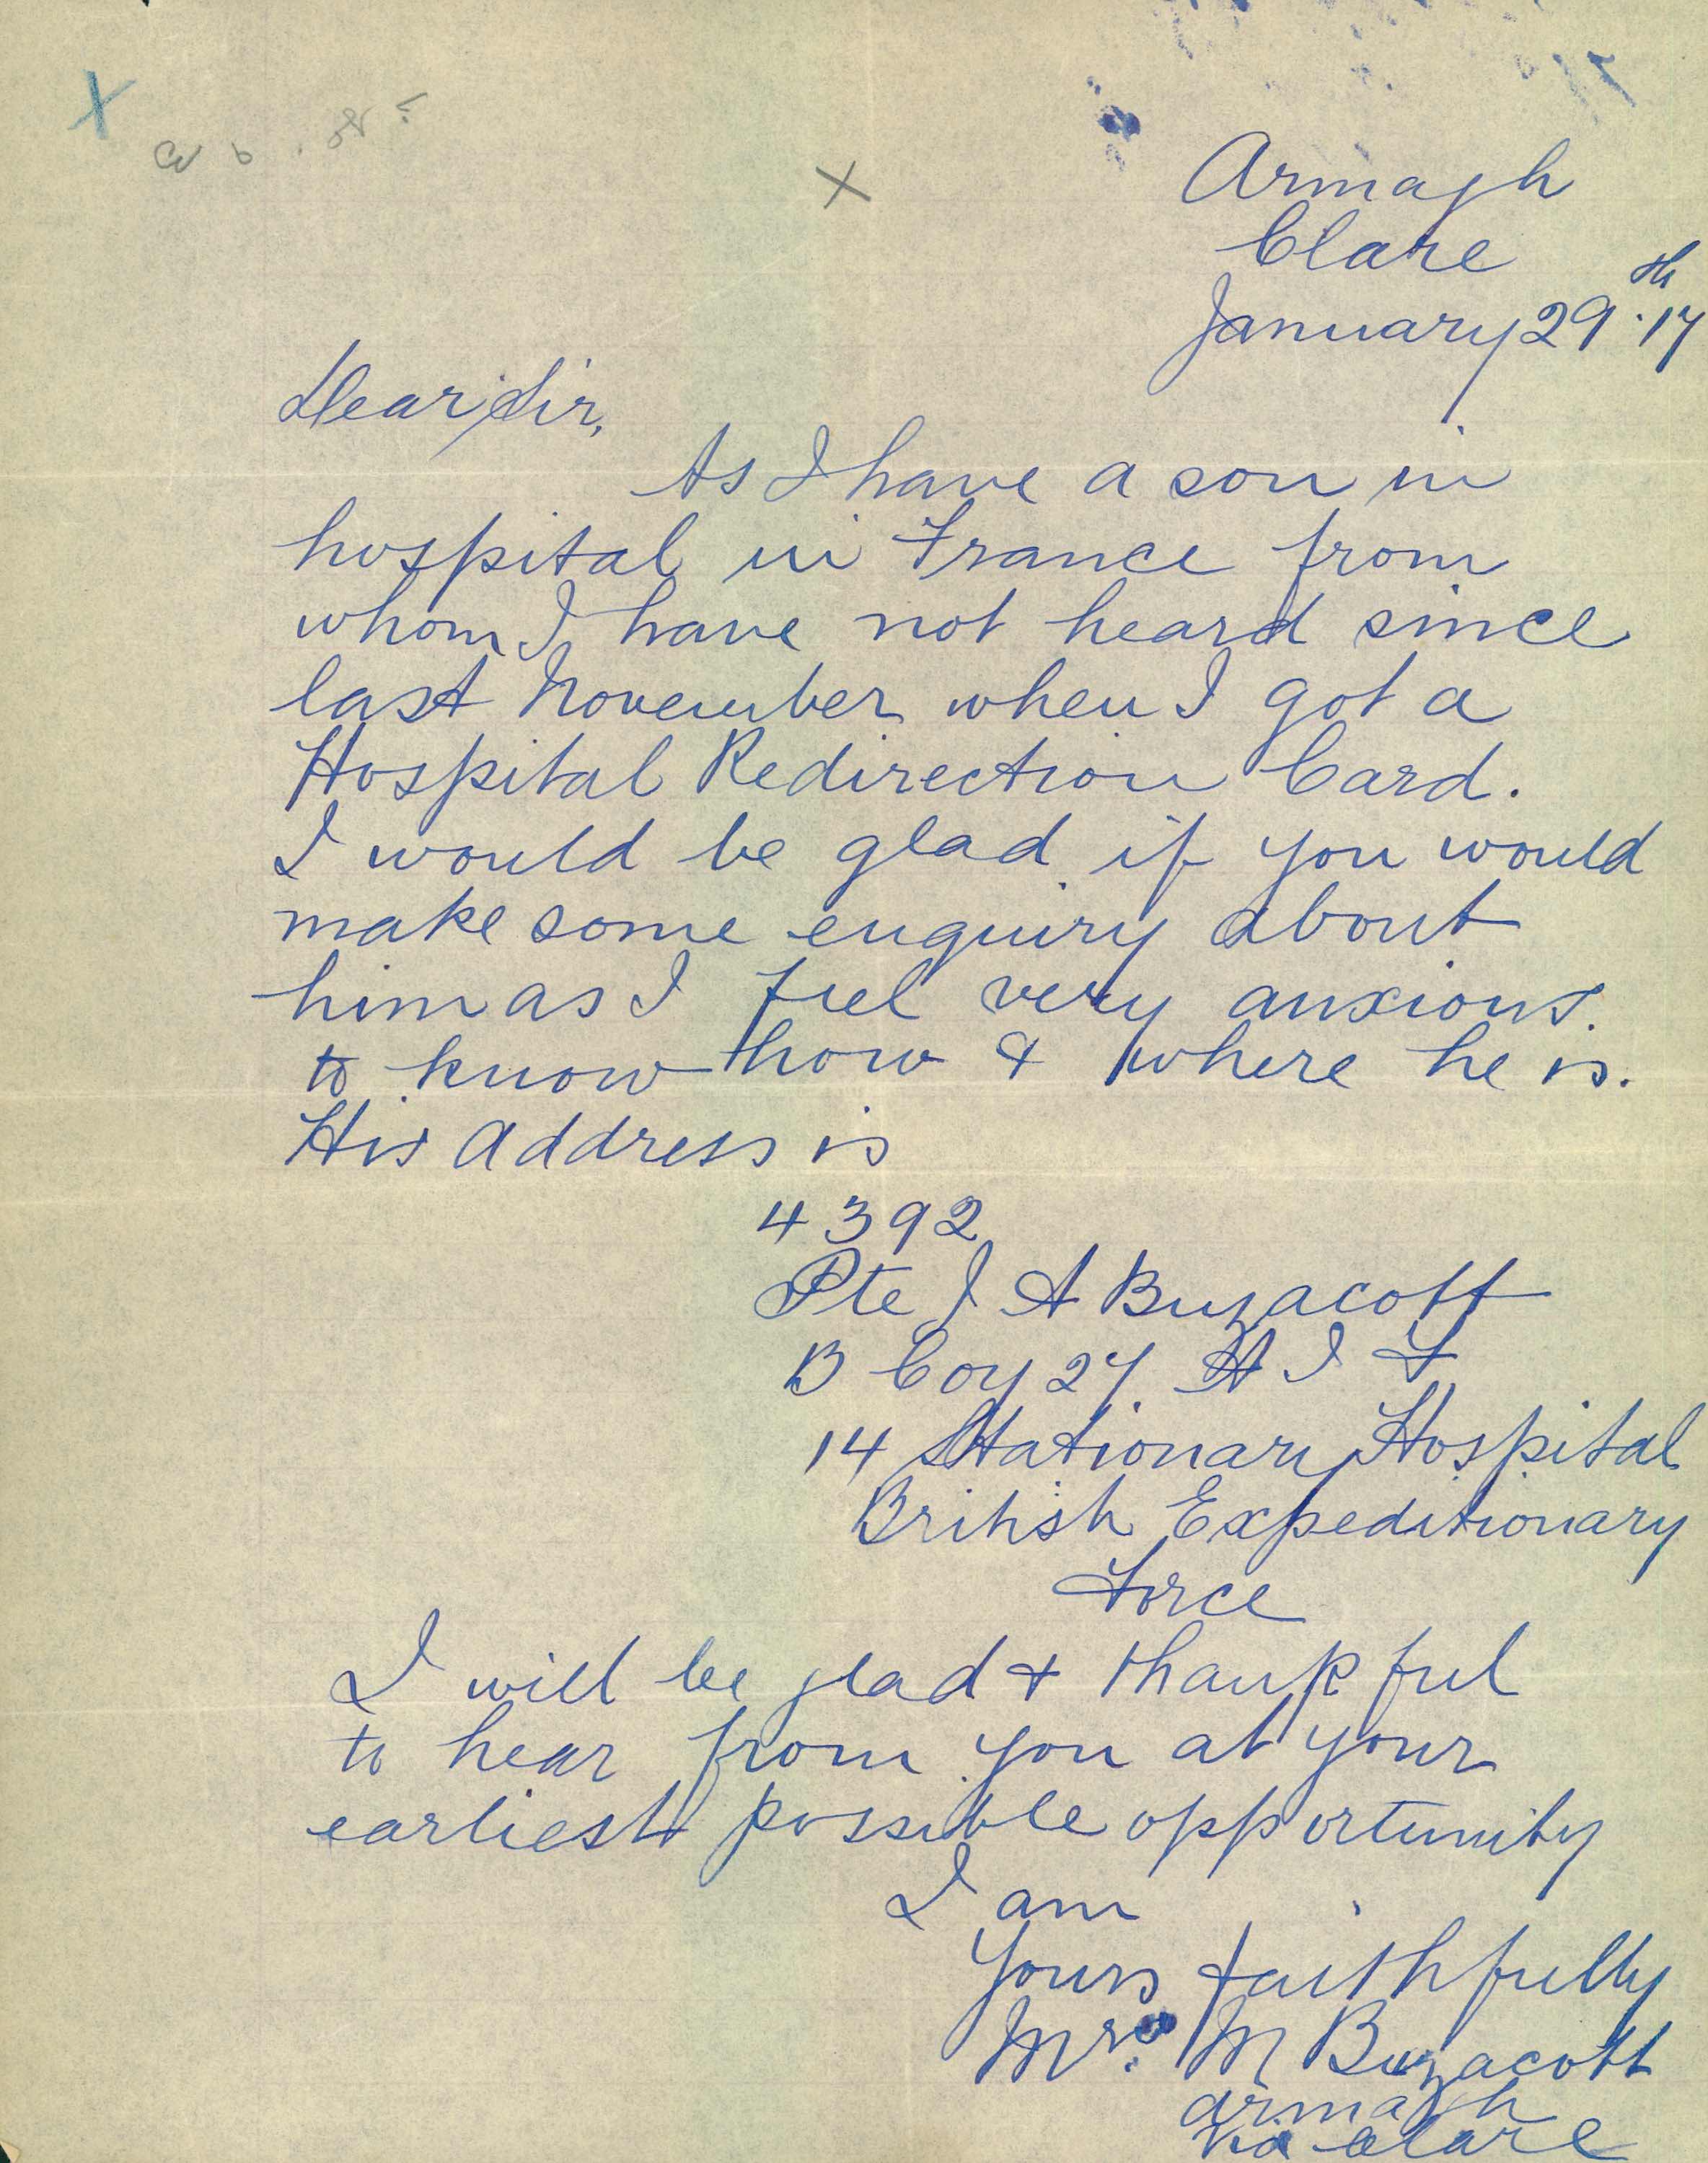 Armagh
Clare
January 29th .17
Dear Sir,
As I have a son in
hospital in France from
whom I have not heard since
last November when I got a
Hospital Redirection Card.
I would be glad if you would
make some enquiry about
him as I feel very anxious.
to know how & where he is.
His address is
4392
Pte J A Buzacott
B Coy 27 A I F
14 Stationary Hospital
British Expeditionary
Force
I will be glad & thankful
to hear from you at your
earliest possible opportunity
I am
Yours faithfully
Mrs. M Buzacott
Armagh
via Clare